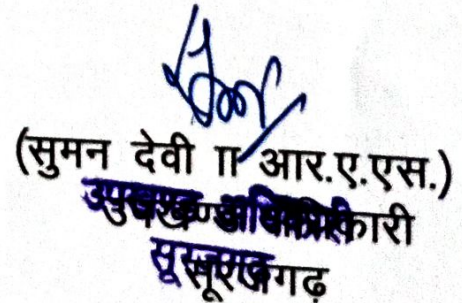 (सुमन देवी II आर.ए.एस.)
उपखण्ड अधिकारी
सूरजगढ़